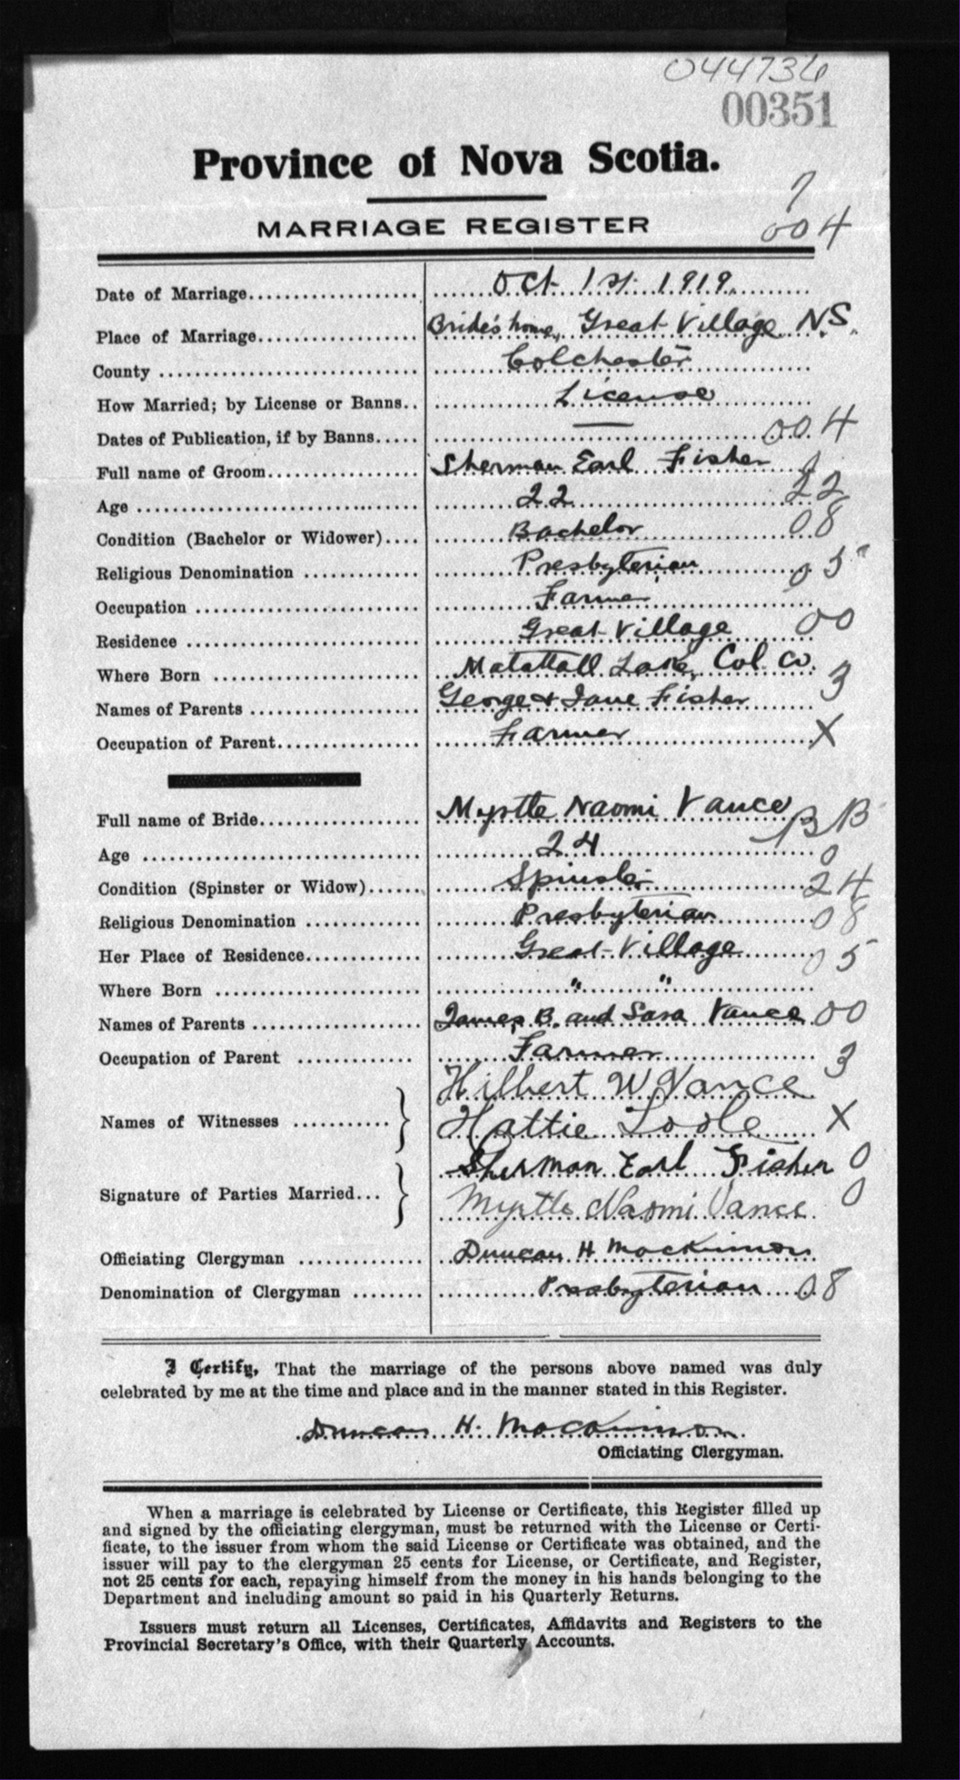 044736
00351
Province of Nova Scotia.
MARRIAGE REGISTER
004
Date of Marriage.................... Oct 1st 1919
Place of Marriage.................. Bride's home, Great Village N.S.
County ............................. Colchester
How Married; by License or Banns.. License
Dates of Publication, if by Banns..... — 004
Full name of Groom.................. Sherman Earl Fisher
Age ................................ 22 22
Condition (Bachelor or Widower).... Bachelor 08
Religious Denomination ............. Presbyterian 05
Occupation ......................... Farmer
Residence .......................... Great Village 00
Where Born ........................ Matattall Lake, Col. Co.
Names of Parents ................... George & Jane Fisher 3
Occupation of Parent................ Farmer X
Full name of Bride.................. Myrtle Naomi Vance BB
Age ................................ 24 0
Condition (Spinster or Widow)...... Spinster 24
Religious Denomination ............. Presbyterian 08
Her Place of Residence............. Great Village 05
Where Born ........................ " "
Names of Parents ................... James B. and Sara Vance 00
Occupation of Parent .............. Farmer 3
Hilbert W Vance
Names of Witnesses ........... } Hattie X
Sherman Earl Fisher 0
Signature of Parties Married... } Myrtle Naomi Vance 0
Officiating Clergyman .............. Duncan H. MacKinnon
Denomination of Clergyman ........ Presbyterian 08
I Certify, That the marriage of the persons above named was duly
celebrated by me at the time and place and in the manner stated in this Register.
Duncan H. MacKinnon
Officiating Clergyman.
When a marriage is celebrated by License or Certificate, this Register filled up
and signed by the officiating clergyman, must be returned with the License or Certi-
ficate, to the issuer from whom the said License or Certificate was obtained, and the
issuer will pay to the clergyman 25 cents for License, or Certificate, and Register,
not 25 cents for each, repaying himself from the money in his hands belonging to the
Department and including amount so paid in his Quarterly Returns.
Issuers must return all Licenses, Certificates, Affidavits and Registers to the
Provincial Secretary's Office, with their Quarterly Accounts.